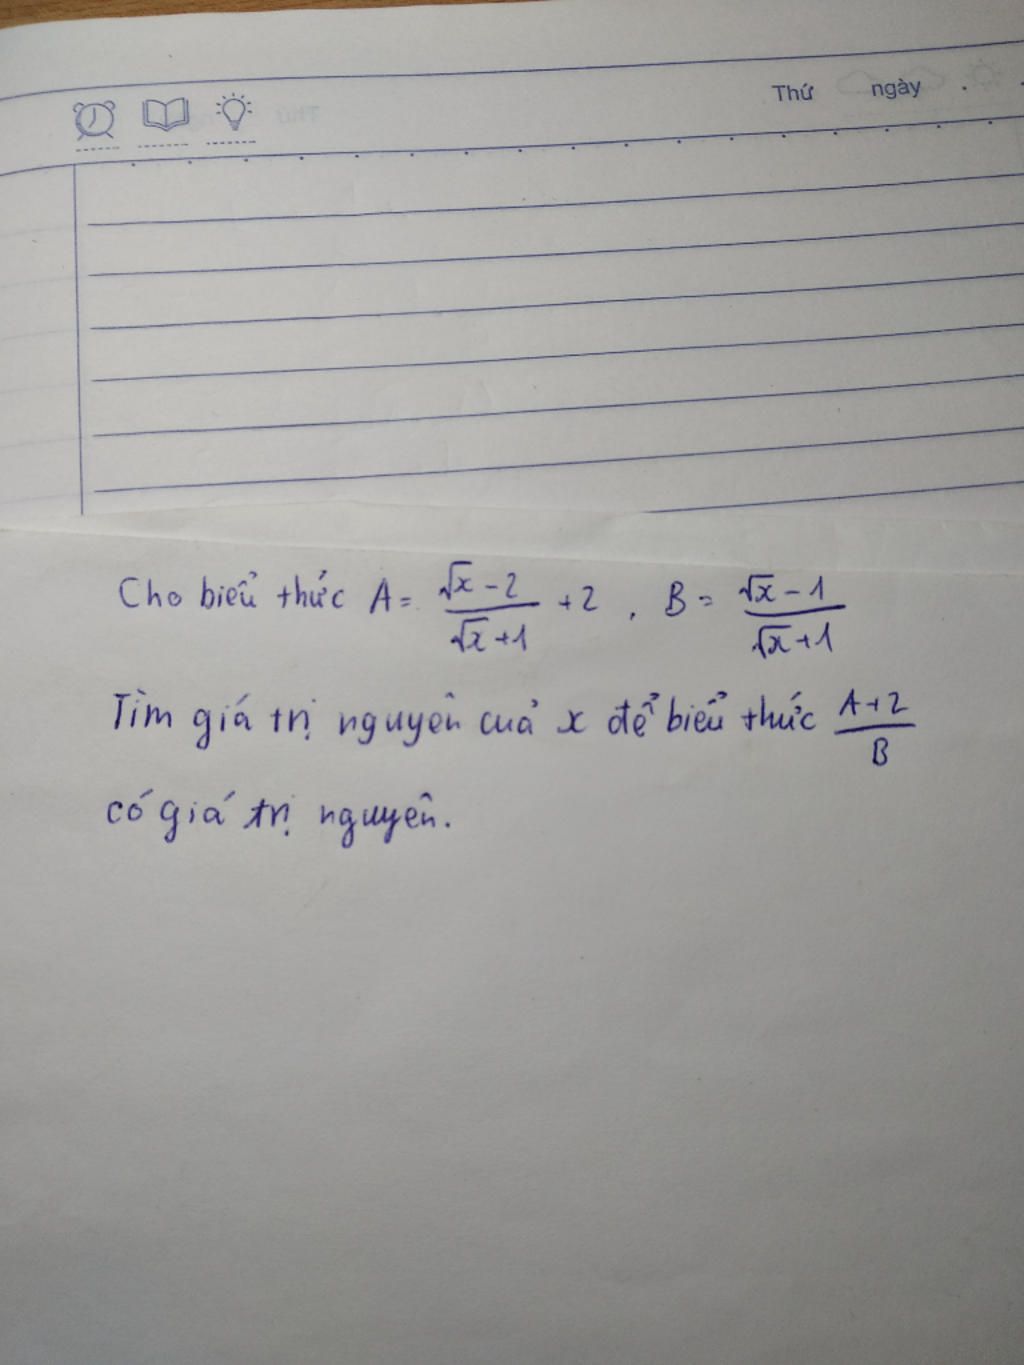 Thứ ngày
Cho biểu thức A = \frac{\sqrt{x} - 2}{\sqrt{x} + 1} + 2 , B = \frac{\sqrt{x} - 1}{\sqrt{x} + 1}
Tìm giá trị nguyên của x để biểu thức \frac{A+2}{B}
có giá trị nguyên.